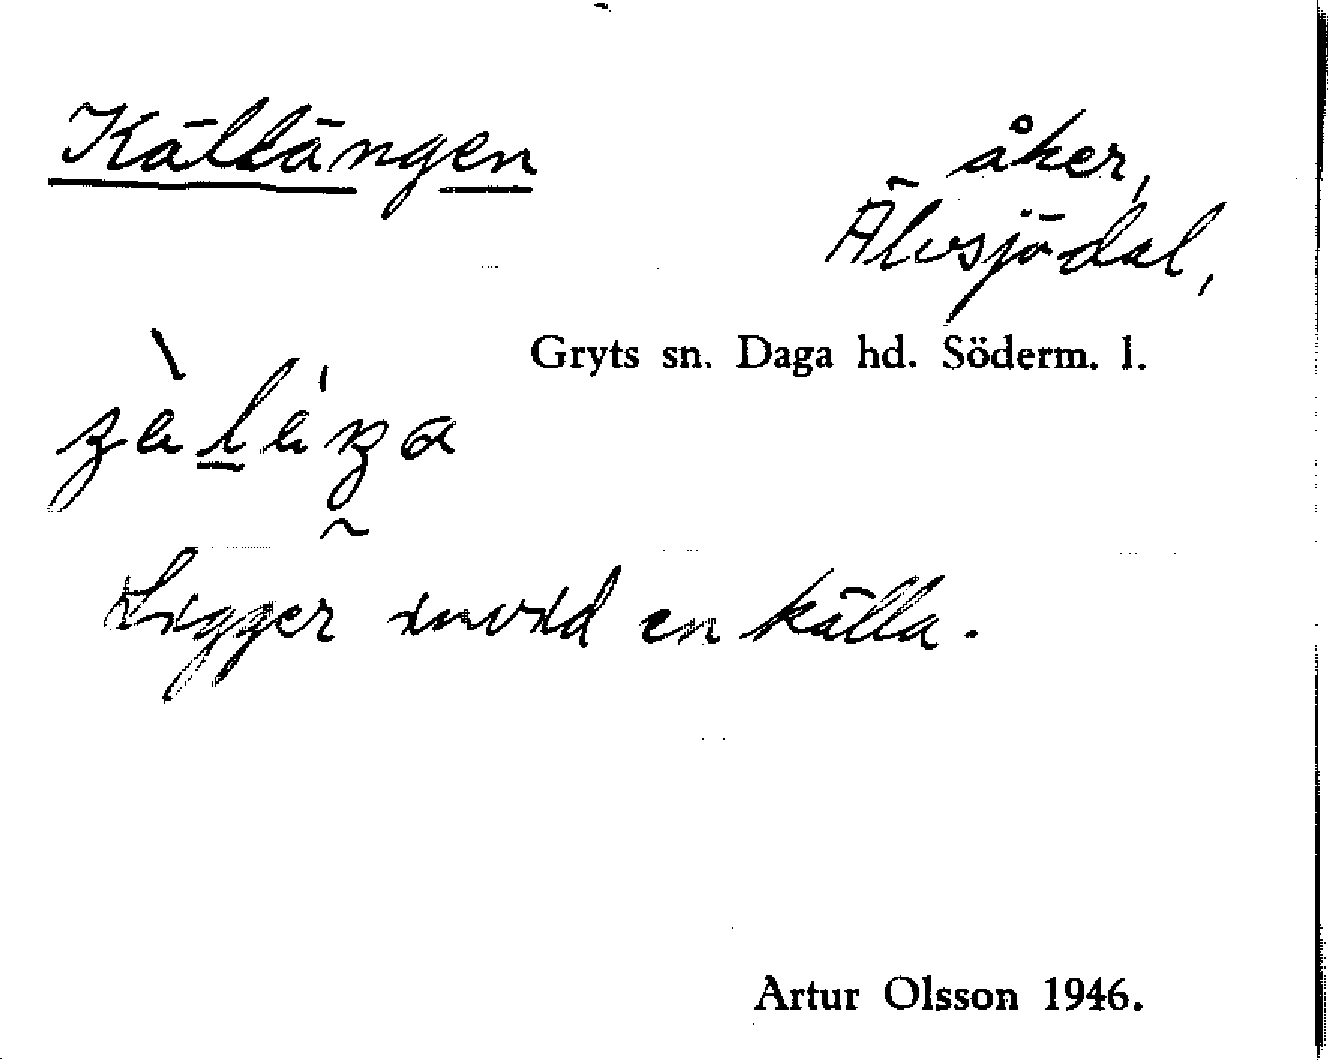 Källängen
åker,
Älvsjödal,
Gryts sn. Daga hd. Söderm. l.
Ligger invid en källa.
Artur Olsson 1946.